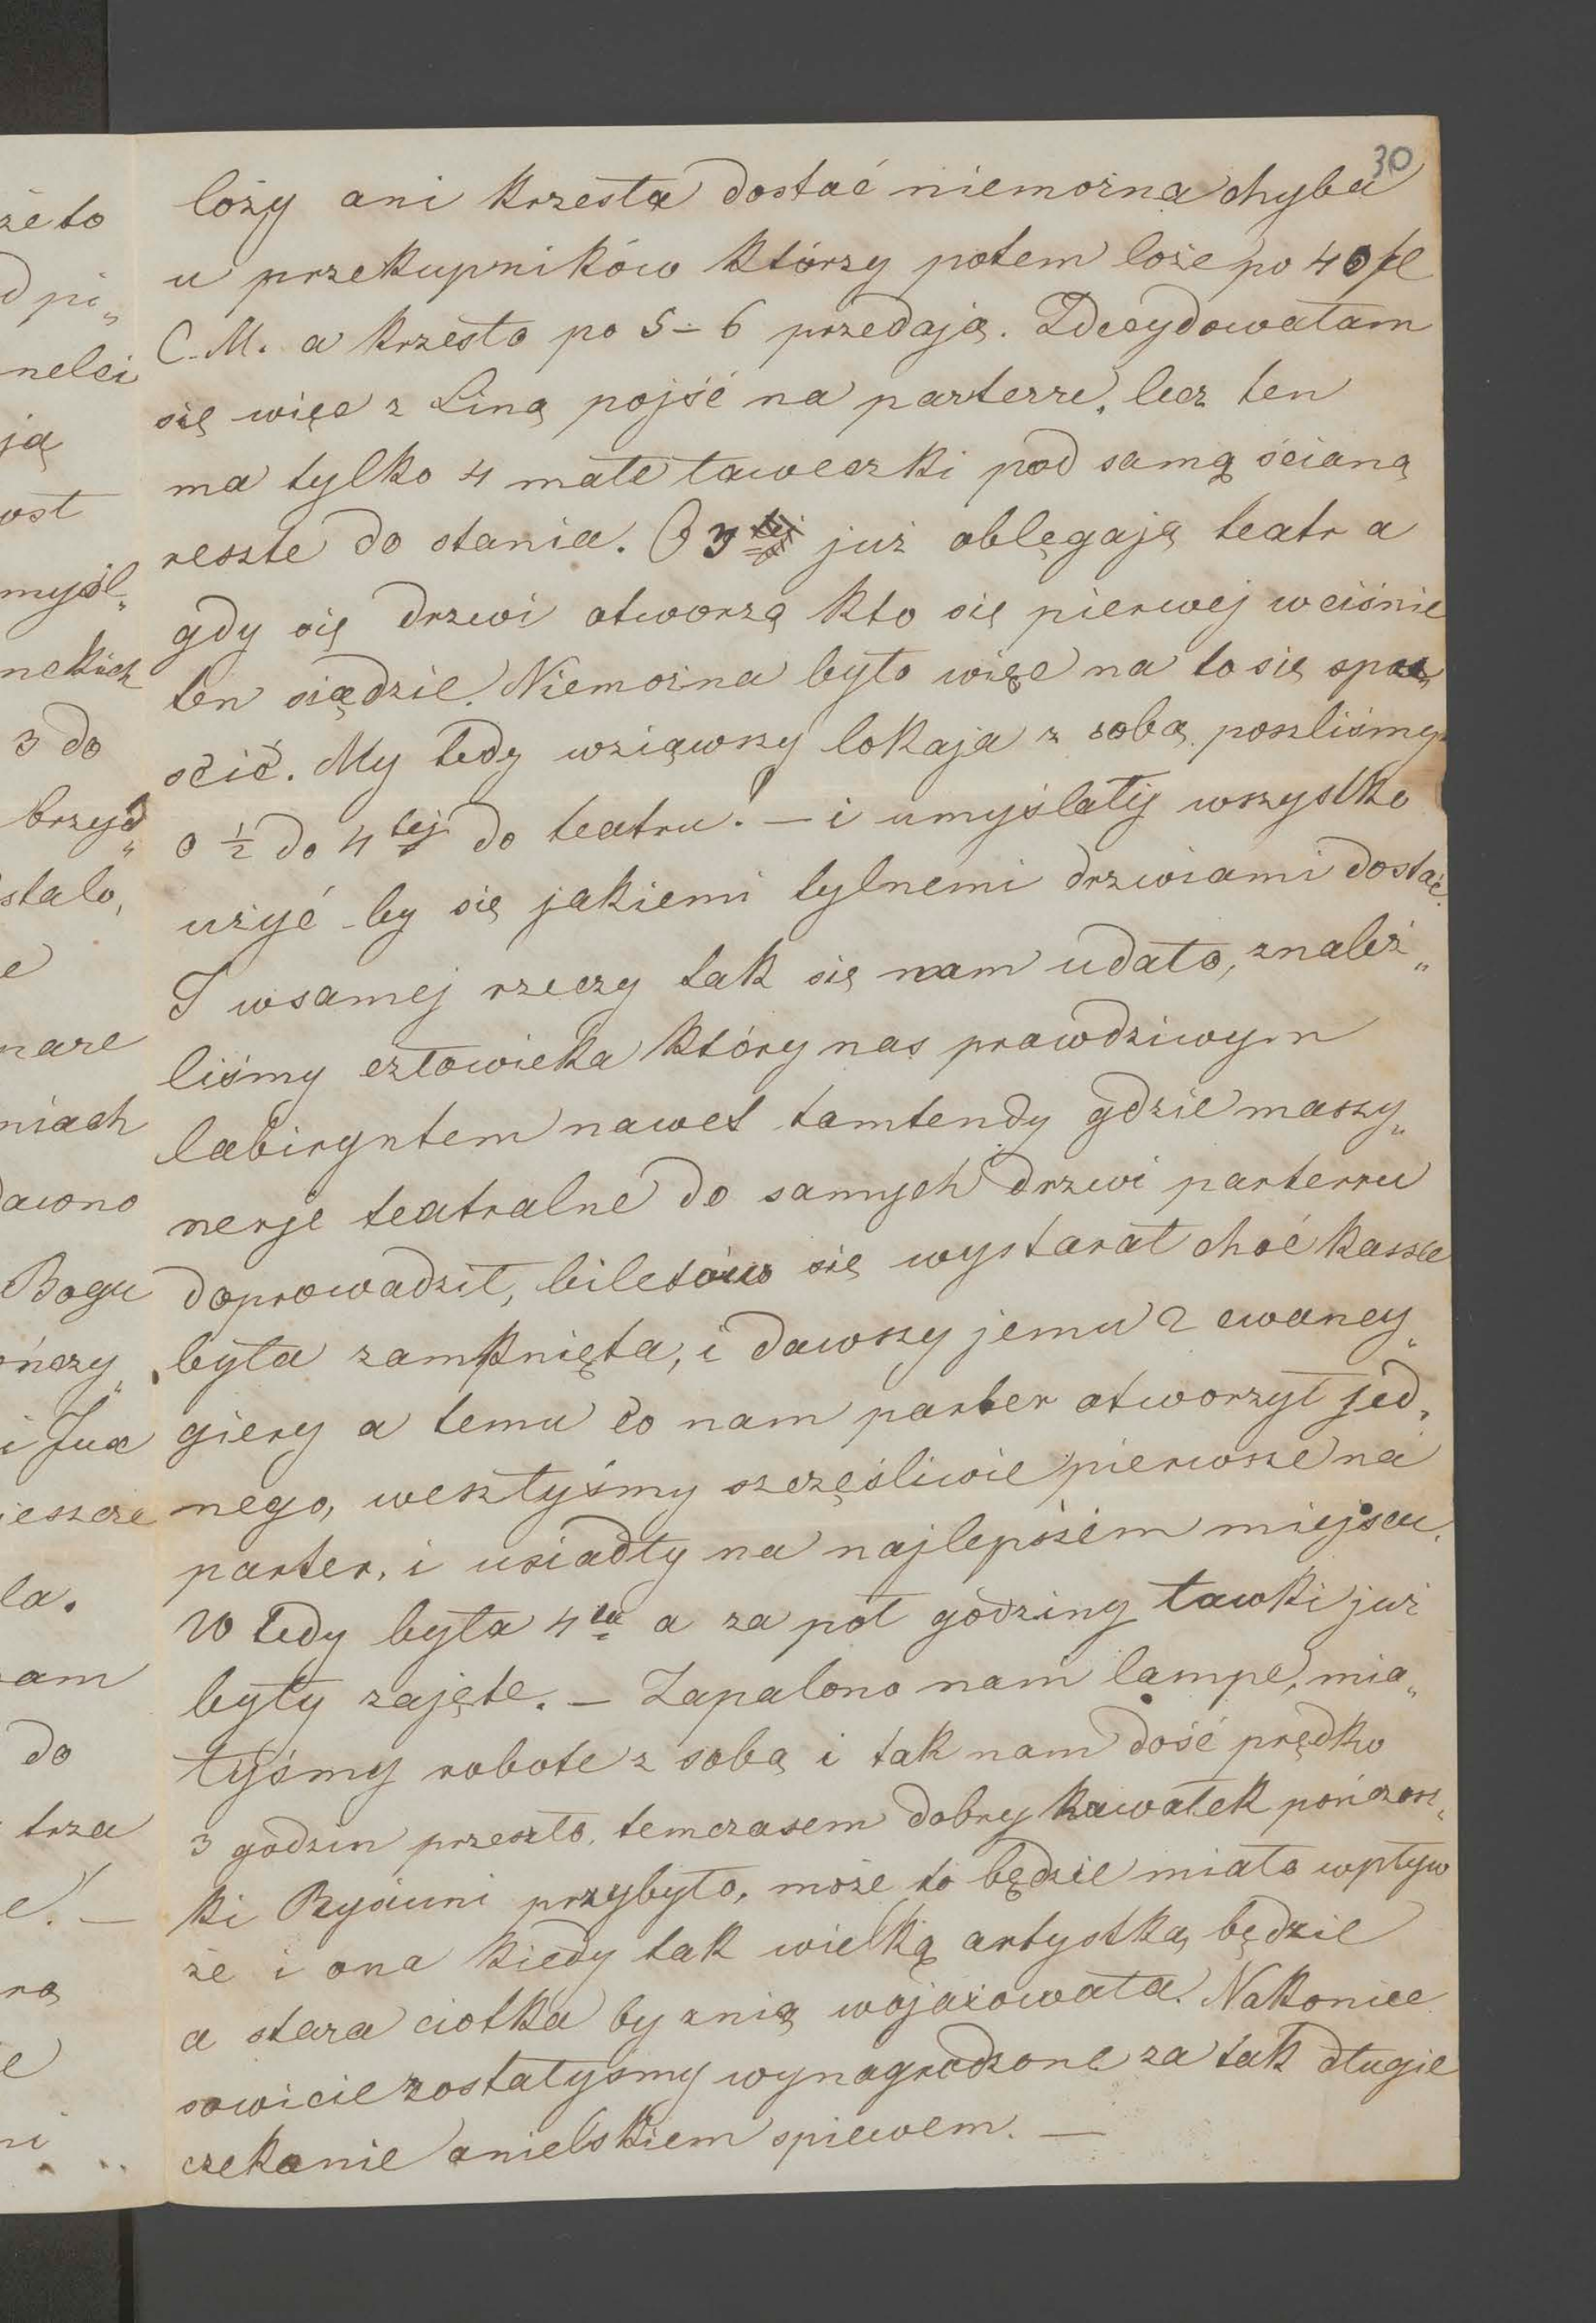 30
loży ani krzesła dostać niemożna chyba
u przekupników którzy potem loże po 40 fl
C. M. a krzesło po 5 - 6 przedają. Zdecydowałam
się więc z Liną pojść na parterre, lecz ten
ma tylko 4 małe ławeczki pod samą ścianą
reszte do stania. O 3 tej już oblęgają teatr a
gdy się drzwi otworzą kto się pierwej wciśnie
ten siądzie. Niemożna było więc na to się spu„
ścić. My tedy wziąwszy lokaja z sobą poszliśmy
o ½ do 4 tej do teatru. — i umyślały wszystko
użyć by się jakiemi tylnemi drzwiami dostać.
I wsamej rzeczy tak się nam udało, znaleź„
liśmy człowieka który nas prawdziwym
labiryntem nawet tamtendy gdzie maszy„
nerje teatralne do samych drzwi parterru
doprowadził, biletów się wystarał choć kassa
była zamknięta, i dawszy jemu 2 cwancy„
giery a temu co nam parter otworzył jed„
nego, weszłyśmy szczęśliwie pierwsze na
parter, i usiadły na najlepszém miejscu.
W tedy była 4ta a za pół godziny ławki już
były zajęte. — Zapalono nam lampe, mia„
łyśmy robote z sobą i tak nam dość prędko
3 godzin przeszło, temczasem dobry kawałek pończosz„
ki Rysiuni przybyło, może to będzie miało wpływ
że i ona kiedy tak wielką artystką będzie
a stara ciotka by znią wojażowała. Nakoniec
sowicie zostałyśmy wynagrodzone za tak długie
czekanie anielskiem spiewem. —
że to
pi„
nelci
ją
ost
myśl„
neckich
3 do
brzyd„
stało,
e
niach
awno
Bogu
ończy„
i Jux
ieszcze
la.
am
do
trza
e. —
rą
e
ni